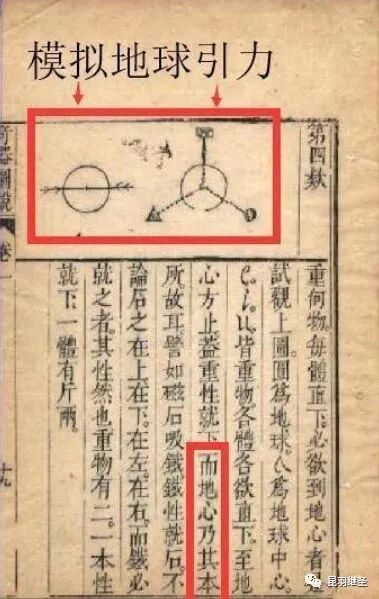 模拟地球引力
第四款
重何物。每體直下。必欲到地心者是
試觀上圖。圓爲地球。爲地球中心
皆重物各體各欲直下。至地
心方止。蓋重性就下。而地心乃其本
所故耳。譬如磁石吸鐵。鐵性就石。不
論石之在上在下。在左。在右。而鐵必
就之者。其性然也。重物有二。一本性
就下。一體有斤兩。
奇器圖說
卷一
十九
昆羽继圣